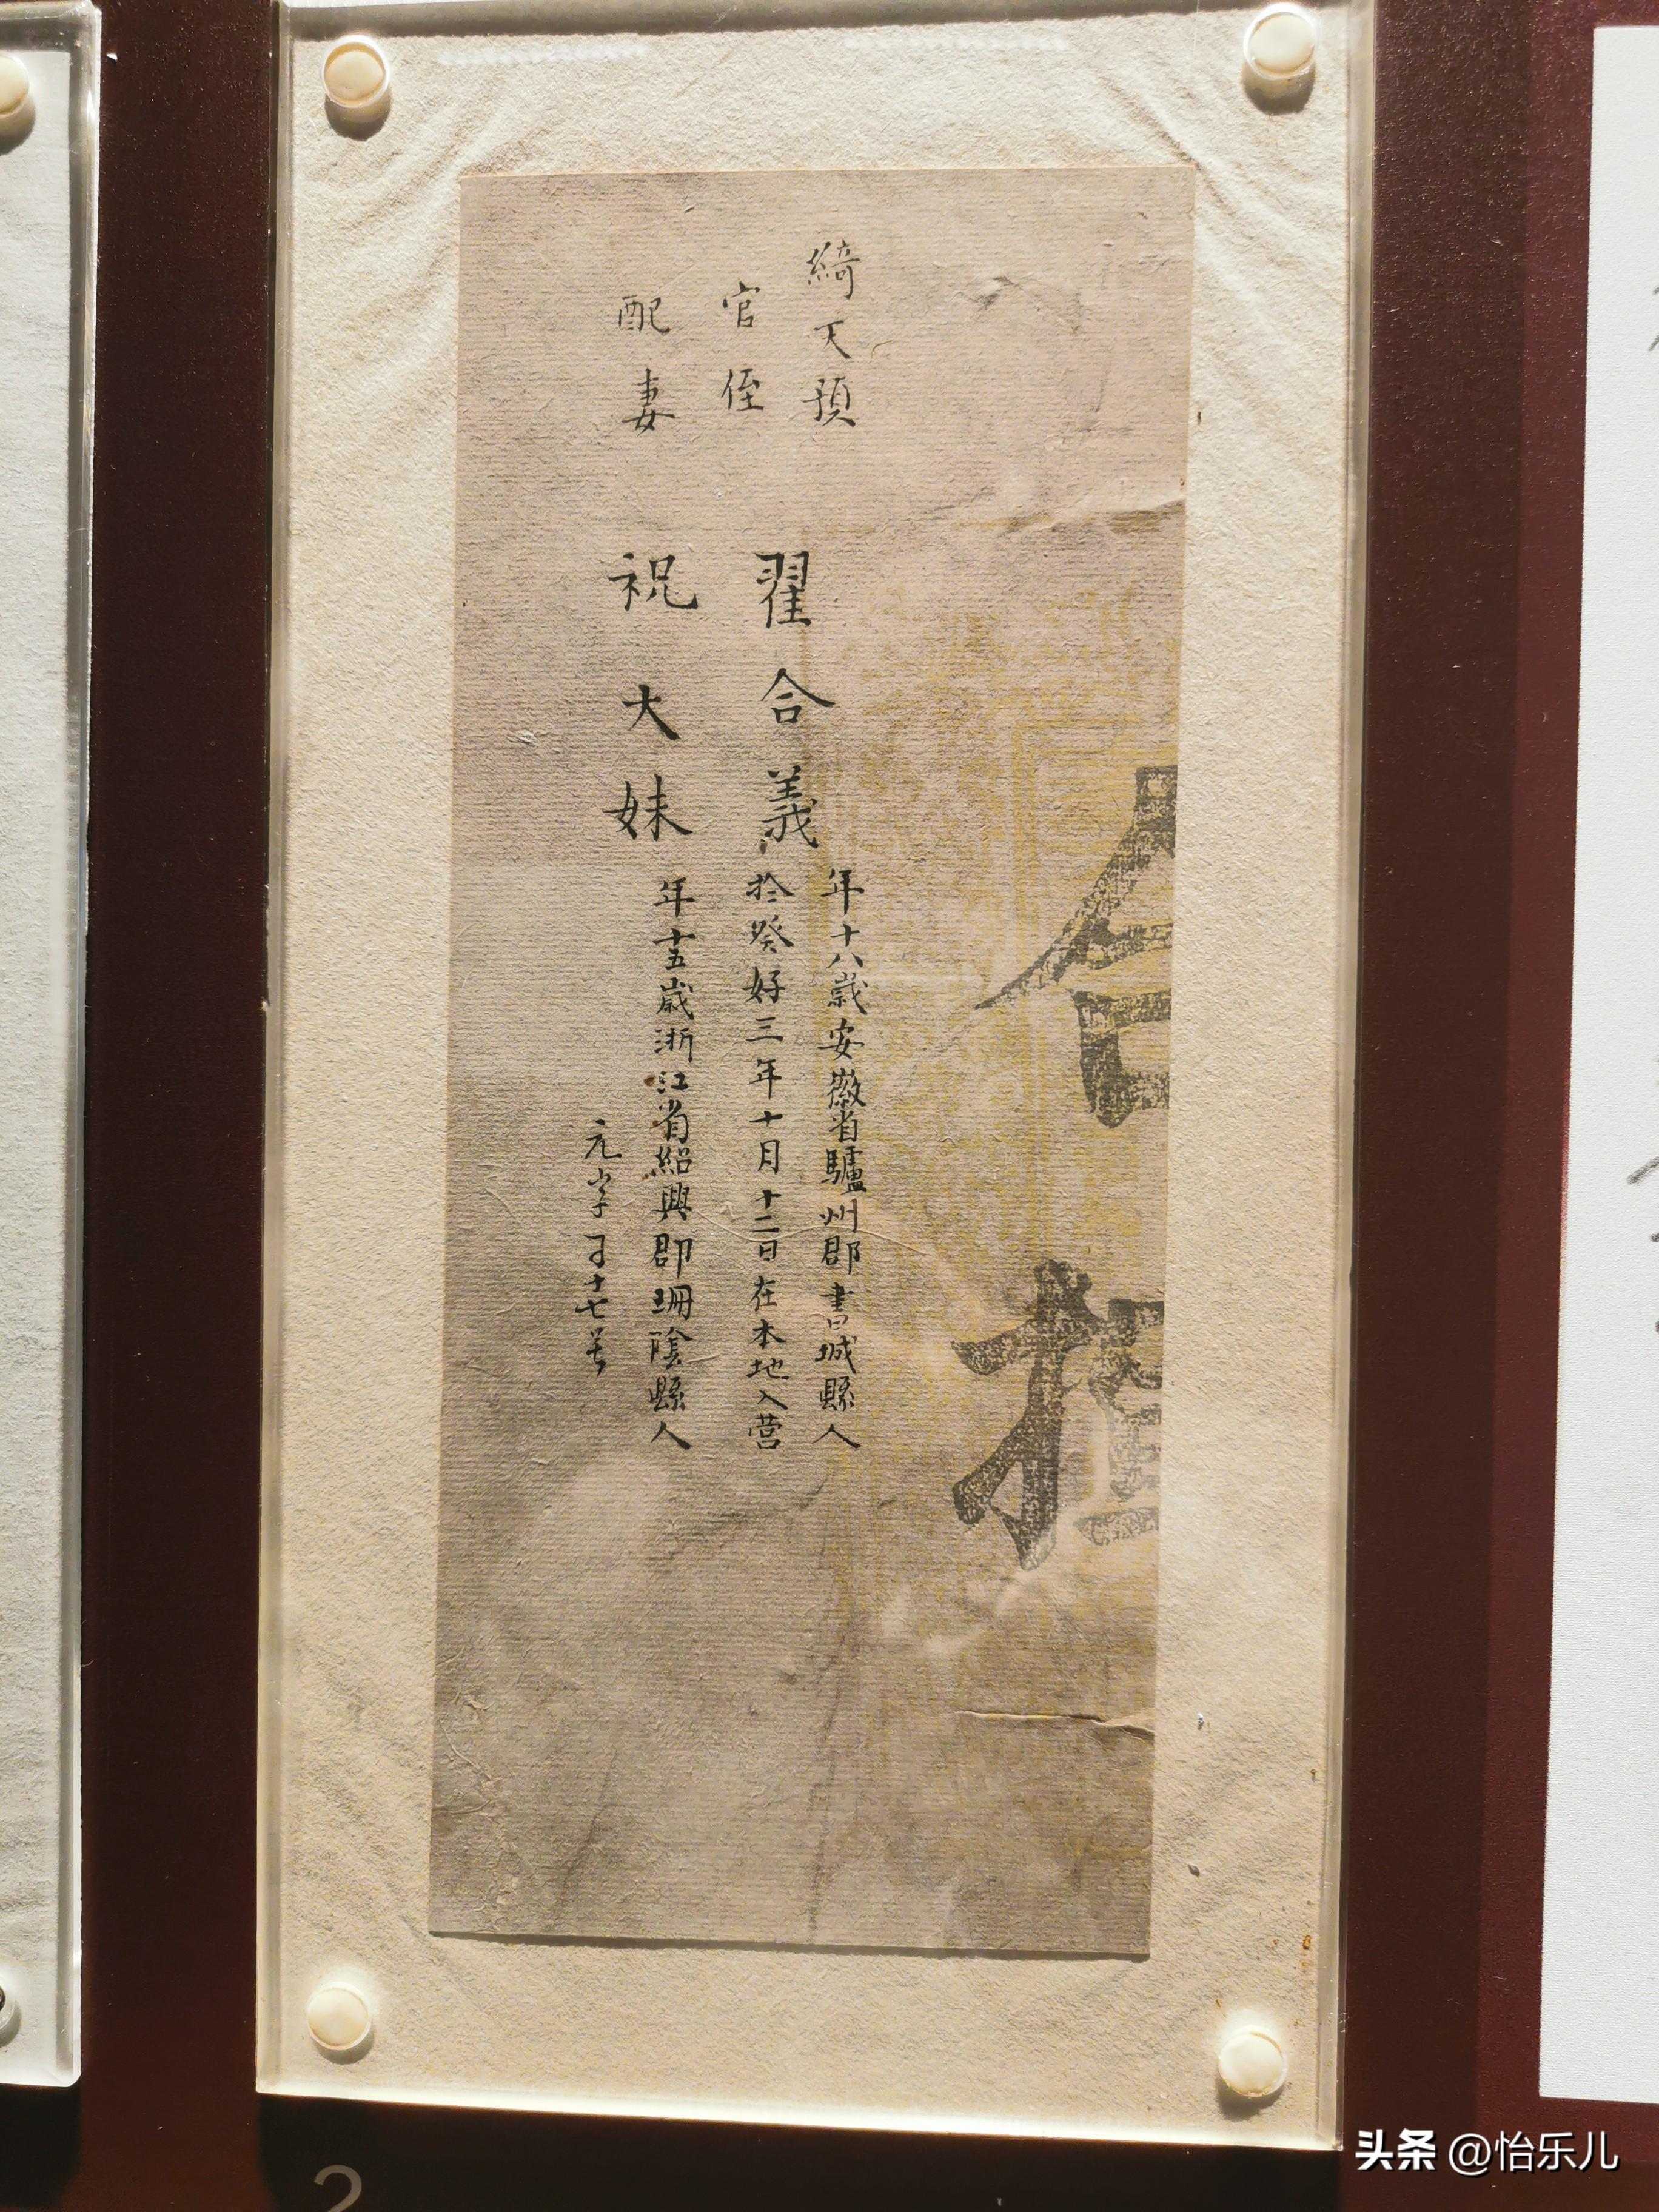 綺天預
官侄
配妻
翟合義
年十八歲安徽省驢州郡書城縣人
扵癸好三年十月十二日在本地入营
祝大妹
年十五歲浙江省紹興郡珊陰縣人
元字 十七号
合挥
2
头条 @怡乐儿